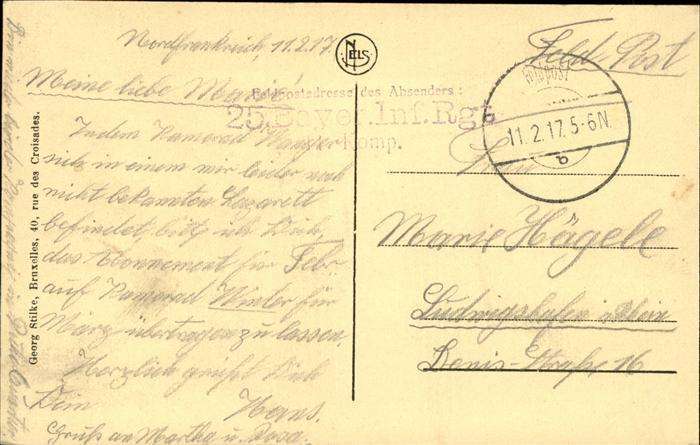 Nordfrankreich, 11.2.17.
Meine liebe Marie!
Indem Kamerad Wanger
sich in einem mir leider noch
nicht bekannten Lazarett
befindet, bitte ich Dich,
das Abonnement für Febr.
auf Kamerad Winter für
März übertragen zu lassen.
Herzlich grüßt Dich
Dein Hans.
Gruß an Martha u. Rosa.
NELS
Feldpostadresse des Absenders:
25. Bayer. Inf. Rgt.
Komp.
Georg Stilke, Bruxelles, 40, rue des Croisades.
Feld Post
11.2.17.5-6N
b
Frau
Marie Hägele
Ludwigshafen a. Rhein
Denis-Straße 16